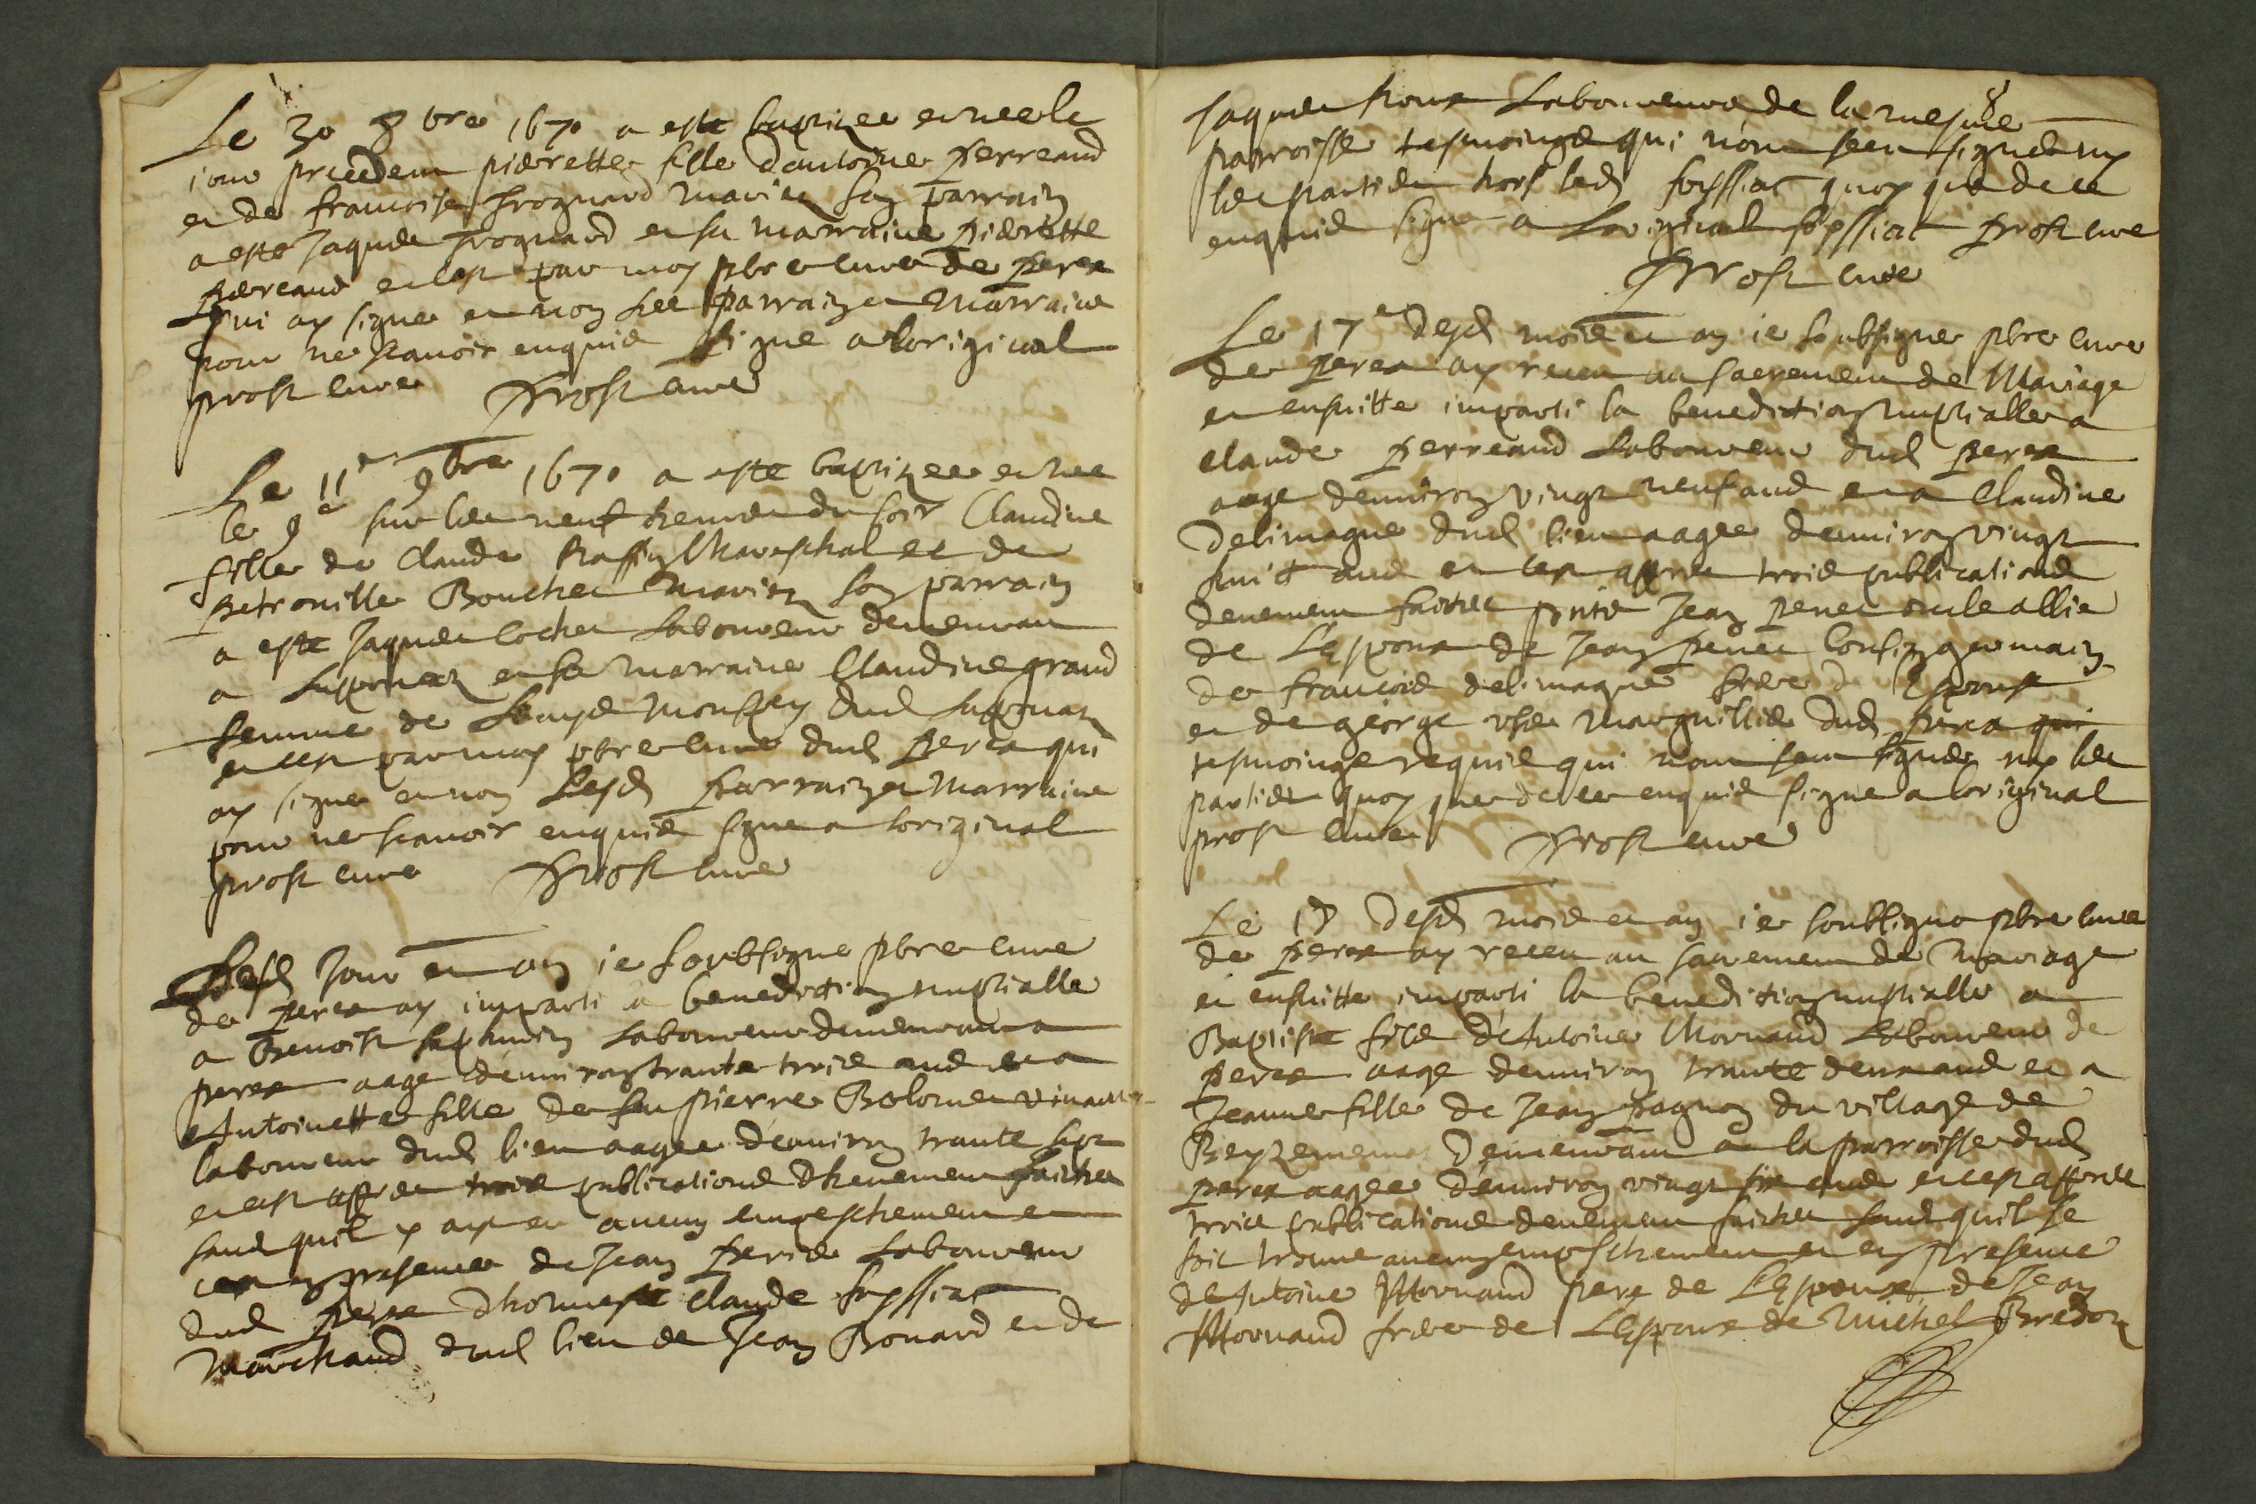 Le 30 8bre 1670 a este baptizee et nee le
iour precedent pierrette fille dantoine perreaud
et de francoise froguard mariez son parrain
a este Jaques froguard et sa marraine pierrette
perreaud et cest par moy pbre cure de peres
qui ay signe et non les parrain et marraine
pour ne scavoir enquis signe a loriginal
prost cure Prost cure
Le 11e 9bre 1670 a este baptizee et nee
le 9e sur les neuf heures du soir Claudine
fille de Claude Raffin Mareschal et de
petronille Bouchet mariez son parrain
a este Jaques cochet laboureur demeurant
a et sa marraine Claudine grand
femme de dud
et cest par moy pbre cure dud peres qui
ay signe et non lesd parrain et marraine
pour ne scavoir enquis signe a loriginal
prost cure Prost cure
Lesd Jour et an ie soubsigne pbre cure
de peres ay imparti la benediction nuptialle
a Benoist laboureur demeurant a
peres aage denviron trante trois ans et a
Antoinette fille de feu pierre vivant
laboureur dud lieu aagee denviron trante sept
et cest appres trois publications faites
sans quil y aye eu aucun empeschement et
en presence de Jean laboureur
dud peres dhonneste Claude foyssiat
Marchand dud lieu de Jean Bouard et de
8
Jaques laboureur de la mesme
parroisse tesmoings qui nont sceu signer ny
les parties hors led foyssiat quoy que de ce
enquis signe a loriginal foyssiat prost cure
Prost cure
Le 17e desd mois et an ie soubsigne pbre cure
de peres ay receu au sacrement de Mariage
et ensuitte imparti la benediction nuptialle a
Claude perreaud laboureur dud peres
aage denviron vingt neuf ans et a Claudine
Delimagne dud lieu aagee denviron vingt
huict ans et cest appres trois publications
faites pnts Jean oncle allie
de Lespoux de Jean cousin germain
de francois delimagne frere de Lespouse
et de george marguillier dud peres qui
tesmoings requis qui nont sceu signer ny les
parties quoy que de ce enquis signe a loriginal
prost cure Prost cure
Le 18 desd mois et an ie soubsigne pbre cure
de peres ay receu au sacrement de mariage
et ensuitte imparti la benediction nuptialle a
Baptiste fils dAntoine Mornand laboureur de
peres aage denviron trante deux ans et a
Jeanne fille de Jean pagnon du village de
demeurant a la parroisse dud
peres aagee denviron vingt six ans et cest appres
trois publications faites sans quil se
soit trouve aucun empeschement et en presence
dAntoine Mornand pere de Lespoux de Jean
Mornand frere de Lespoux de Michel Bredon